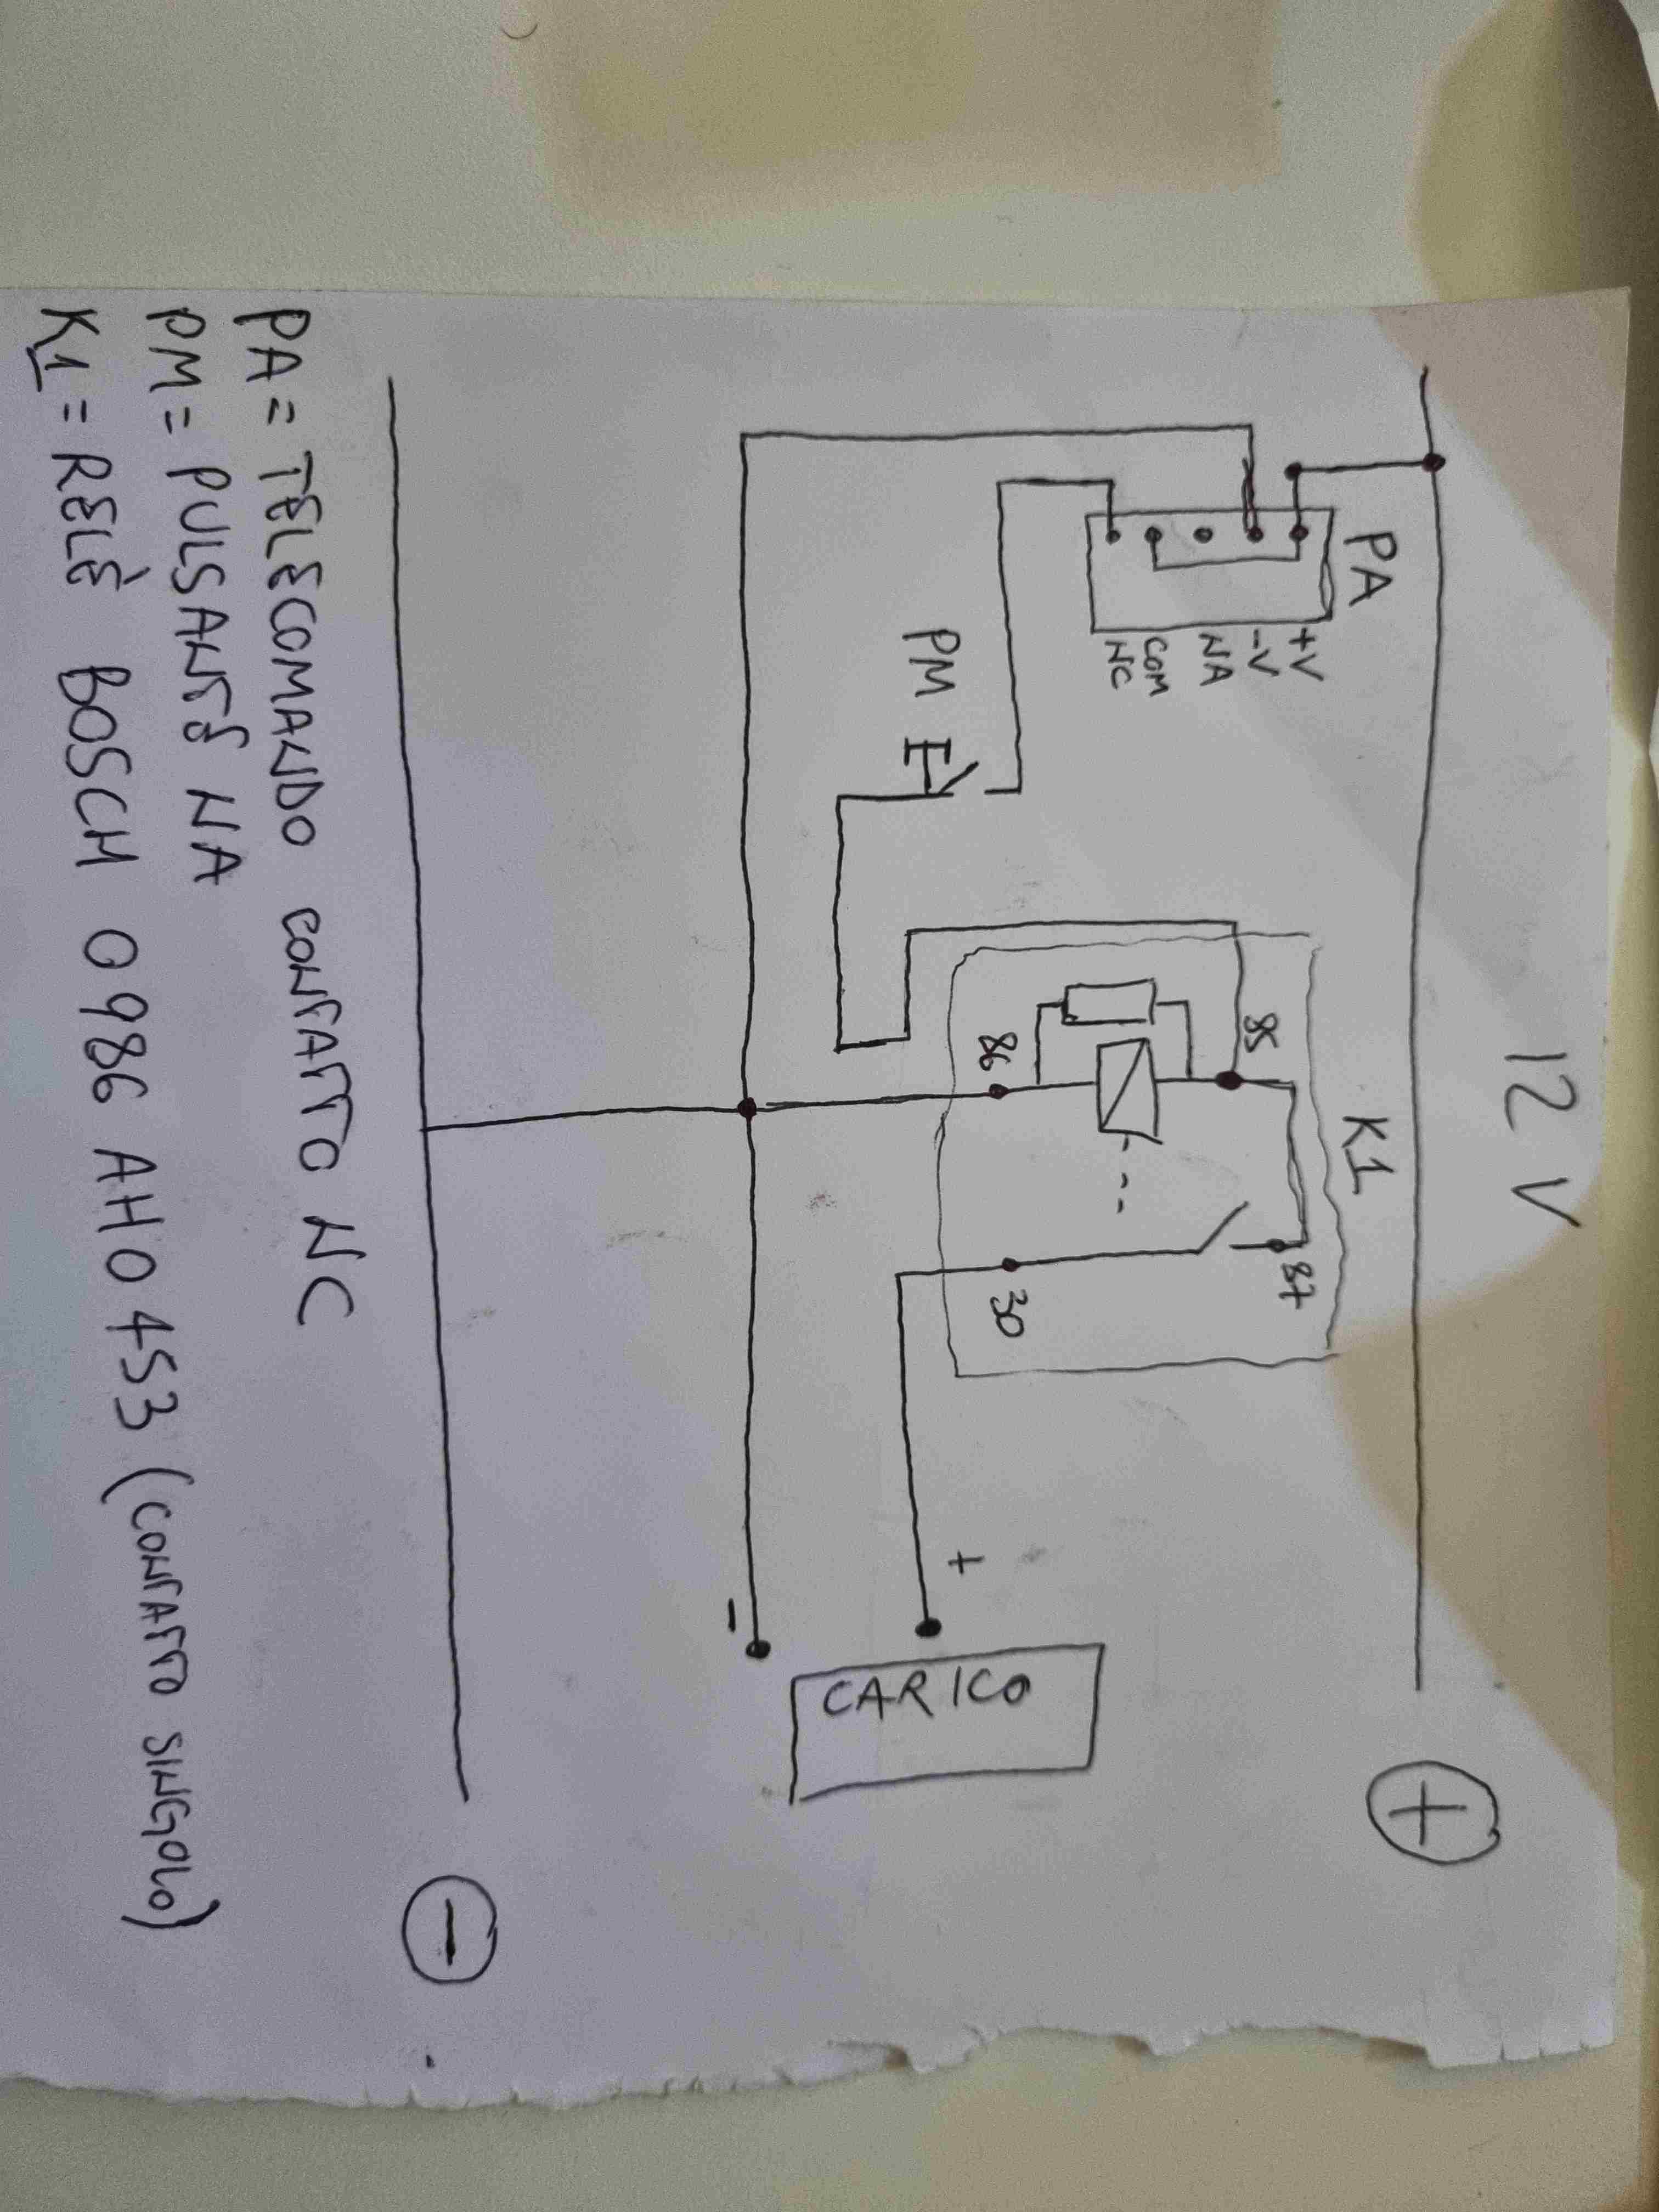 12 V
+
PA
+V
-V
NA
COM
NC
K1
85
87
86
30
PM
+
-
CARICO
-
PA = TELECOMANDO CONTATTO NC
PM = PULSANTE NA
K1 = RELÈ BOSCH 0986 AH0453 (CONTATTO SINGOLO)